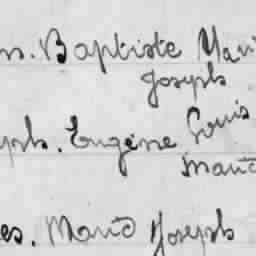 n. Baptiste Mari
Joseph
ph. Eugène Louis
Marie
es. Marie Joseph